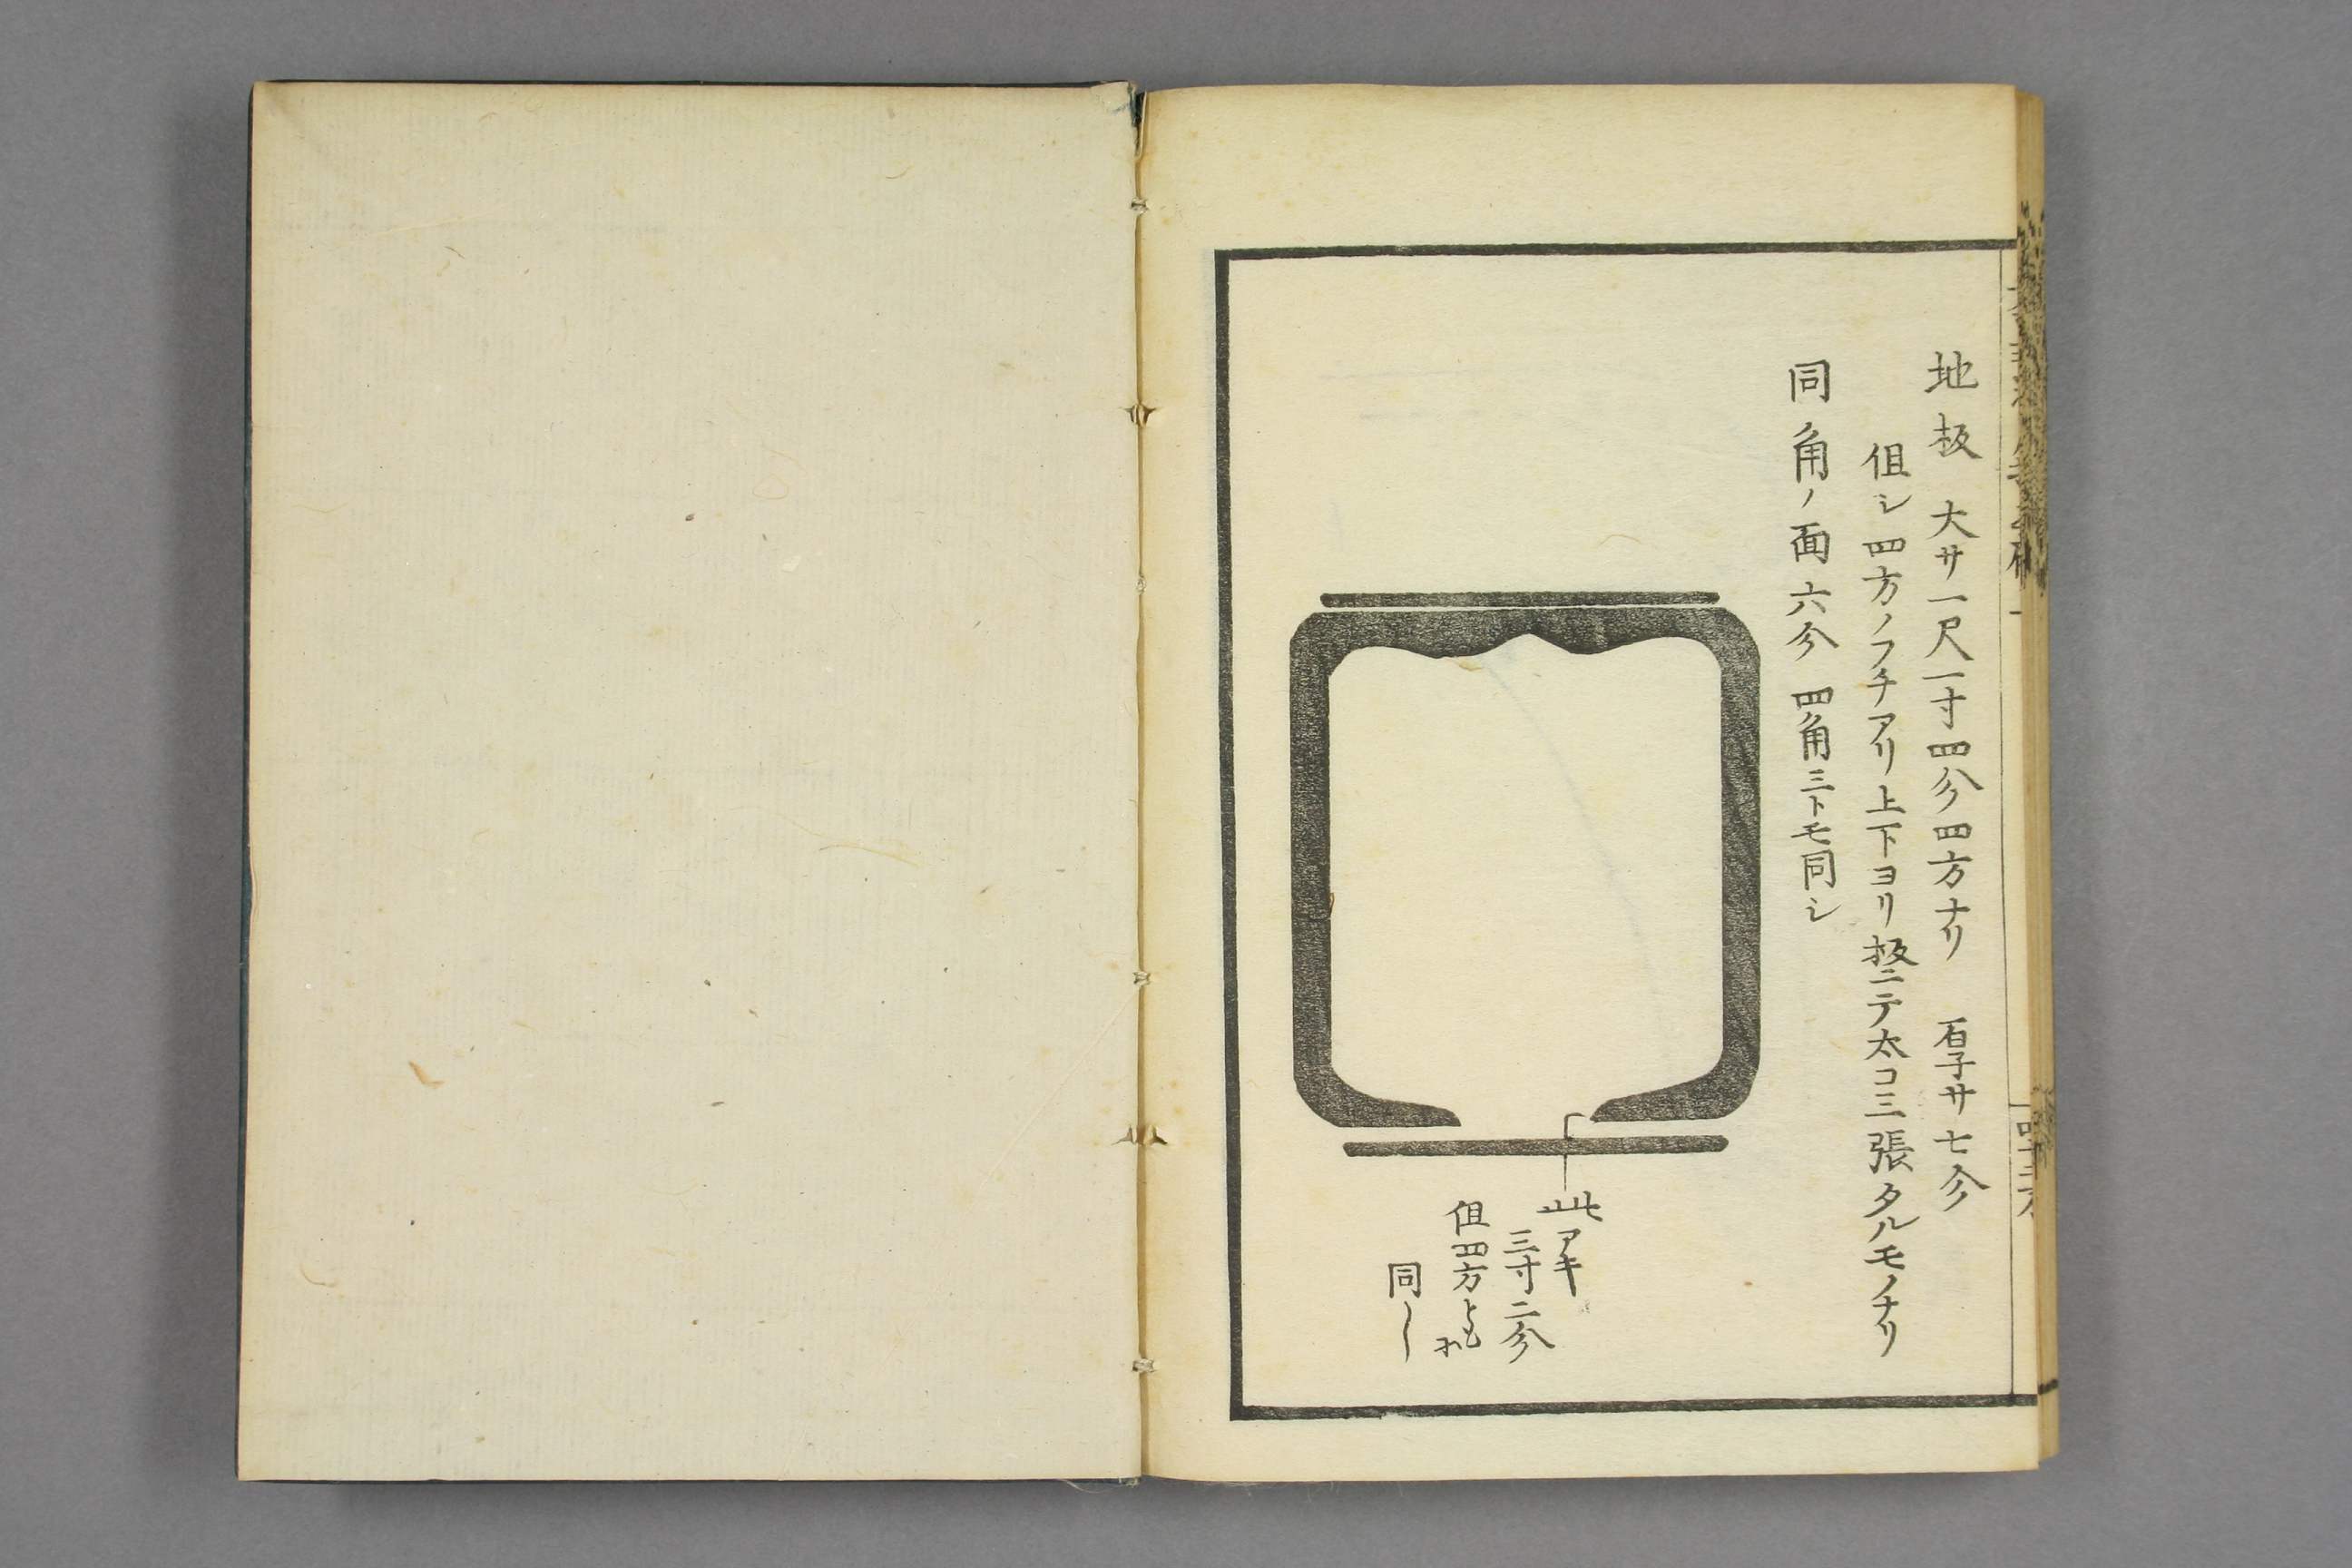 地板 大サ一尺一寸四分四方ナリ 厚サ七分
但シ四方ノフチアリ上下ヨリ板ニテ太コニ張タルモノナリ
同角ノ面六分 四角ニトモ同シ
此アキ
三寸二分
但四方とも
同し